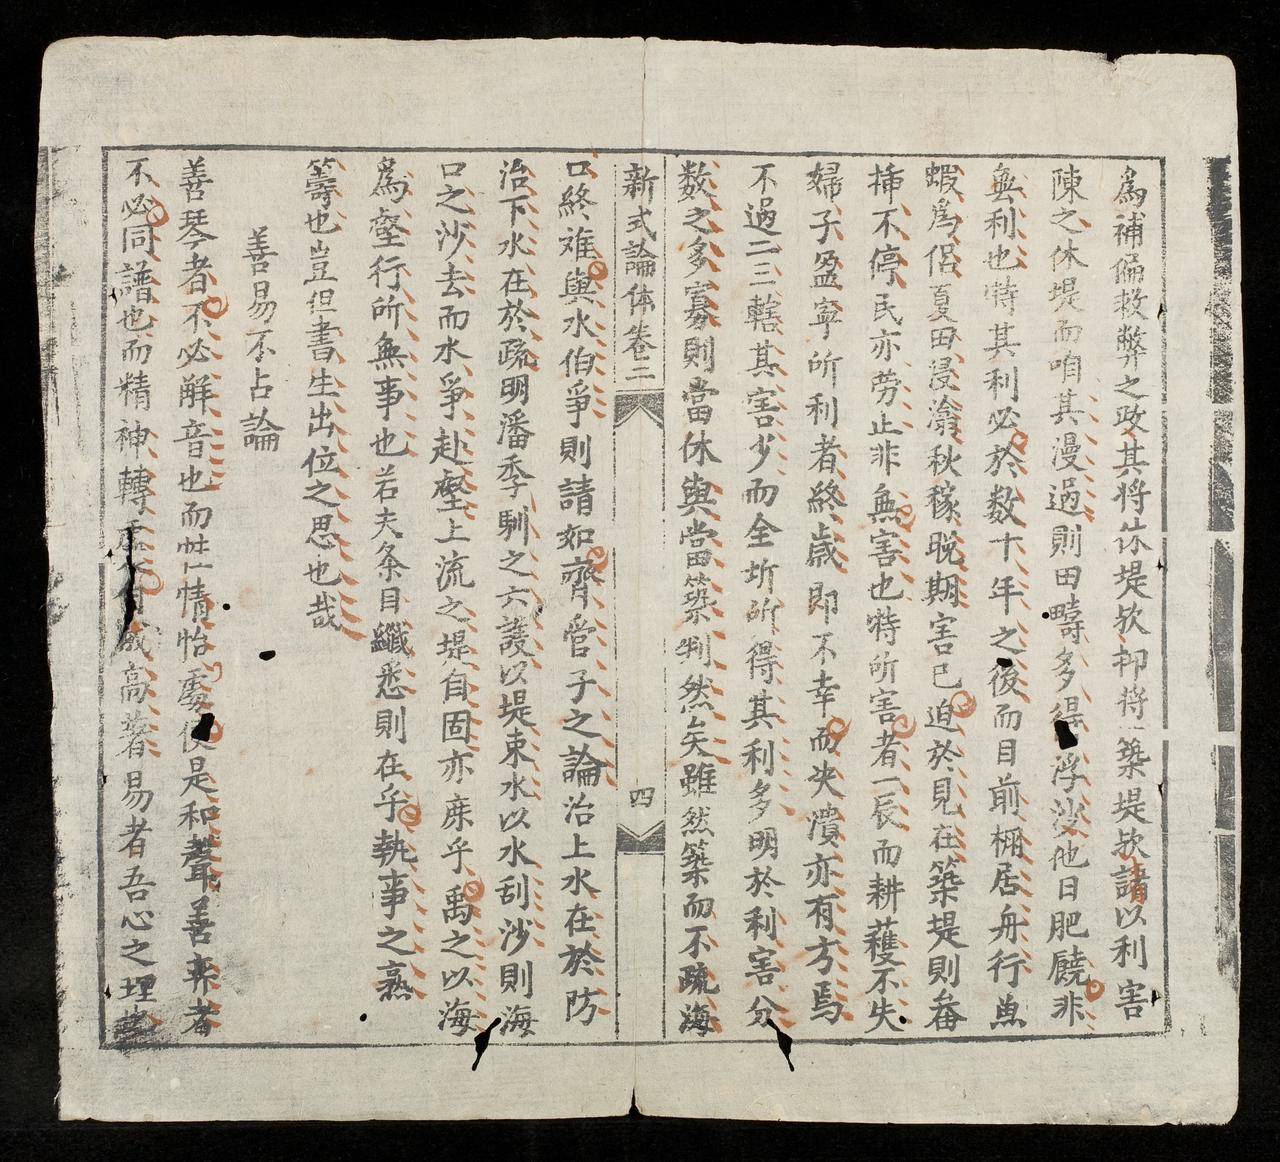 爲補偏救弊之政其将休堤欤抑将築堤欤請以利害
陳之休堤而咱其漫過則田疇多得浮沙他日肥饒非
無利也特其利必於数十年之後而目前柵居舟行魚
蝦爲侶夏田浸滃秋稼晚期害已迫於見在築堤則畚
挿不停民亦劳止非無害也特所害者一辰而耕穫不失
婦子盈寧所利者終歲即不幸而决潰亦有方焉
不過二三轄其害少而全圻所得其利多明於利害分
数之多寡則當休與當築判然矣雖然築而不疏海
新式論体卷二
四
口終难與水伯爭則請如齊管子之論治上水在於防
治下水在於疏明潘季馴之六議以堤束水以水刮沙則海
口之沙去而水爭赴壑上流之堤自固亦庶乎禹之以海
爲壑行所無事也若夫条目纖悉則在乎執事之熟
籌也豈但書生出位之思也哉
善易不占論
善琴者不必解音也而性情怡處便是和聲善弈者
不必同譜也而精神轉處高著易者吾心之理